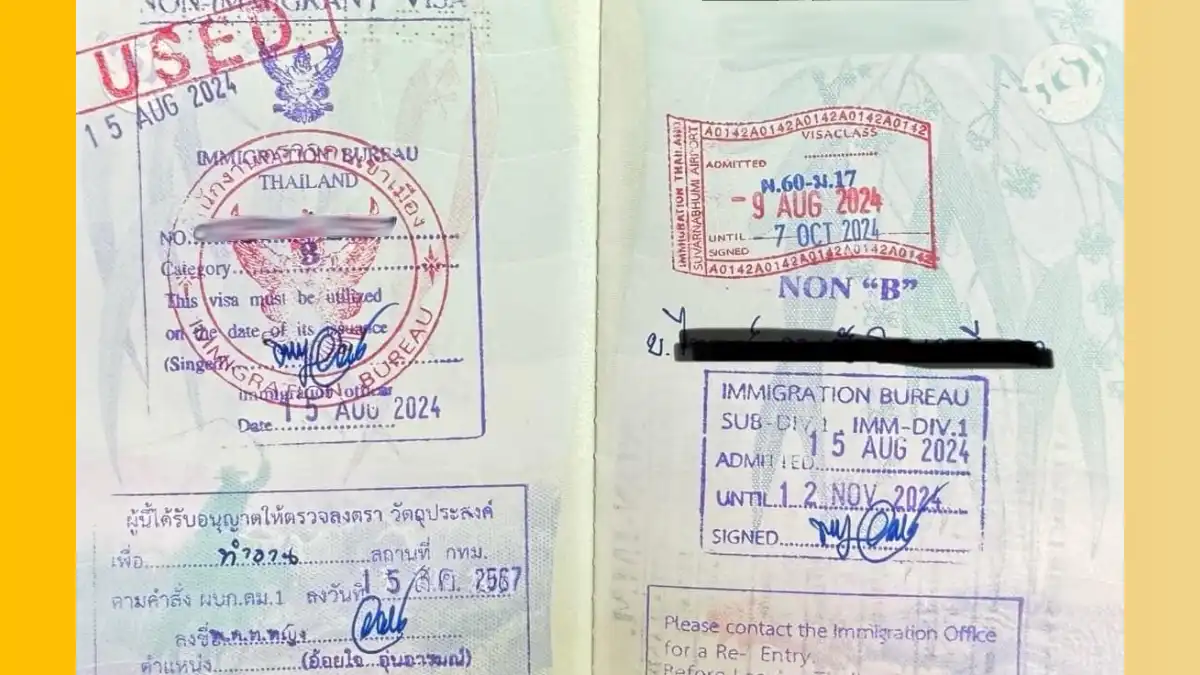 NON-IMMIGRANT VISA
USED
15 AUG 2024
IMMIGRATION BUREAU
THAILAND
NO.
Category
B
This visa must be utilized
on the date of its issuance
(Singed)
Immigration officer
Date 15 AUG 2024
IMMIGRATION BUREAU
ผู้นี้ได้รับอนุญาตให้ตรวจลงตรา วัตถุประสงค์
เพื่อ ทำงาน สถานที่ กทม.
ตามคำสั่ง ผบก.ตม.1 ลงวันที่ 15 ส.ค. 2567
ลงชื่อ
ตำแหน่ง (อ้อยใจ อุ่นอารมณ์)
A0142A0142A0142A0142A0142A0142
IMMIGRATION THAILAND
SUVARNABHUMI AIRPORT
VISACLASS
ADMITTED
ผ.60-ม.17
- 9 AUG 2024
UNTIL - 7 OCT 2024
SIGNED
A0142A0142A0142A0142A0142A0142
NON “B”
IMMIGRATION BUREAU
SUB-DIV.1 , IMM-DIV.1
ADMITTED 15 AUG 2024
UNTIL 12 NOV 2024
SIGNED
Please contact the Immigration Office
for a Re- Entry